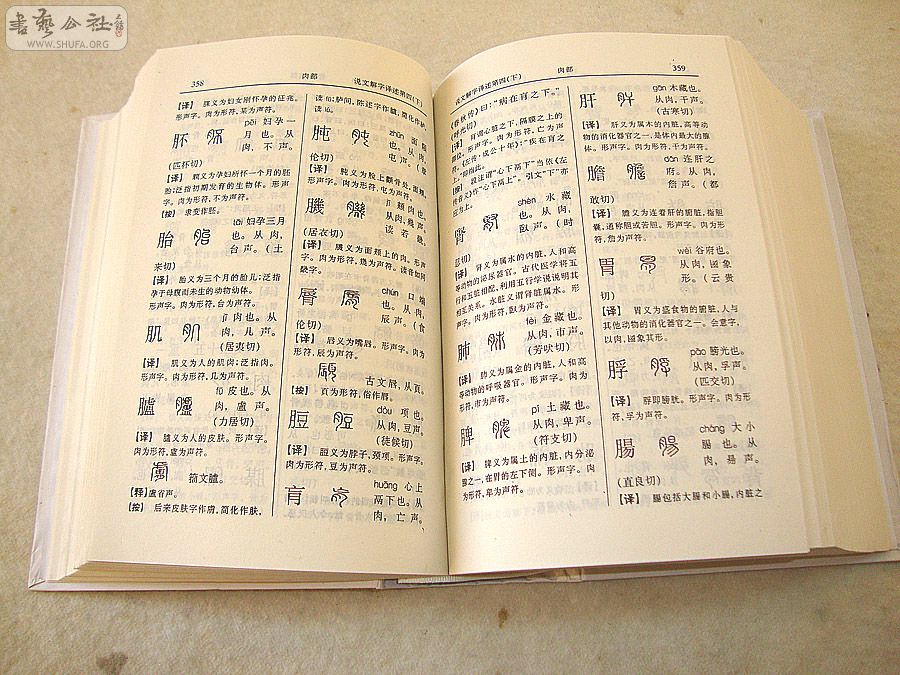 书艺公社
WWW.SHUFA.ORG
358
肉部
说文解字译述第四(下)
【译】 腜义为妇女刚怀孕的征兆。
形声字。肉为形符,某为声符。
肧
pēi 妇孕一
月也。从
肉,不声。
(匹杯切)
【译】 肧义为孕妇所怀一个月的胚
胎;泛指初期发育的生物体。形声
字。肉为形符,不为声符。
【按】 隶变作胚。
胎
tāi 妇孕三月
也。从肉,
台声。(土
来切)
【译】 胎义为三个月的胎儿;泛指
孕于母腹而未生的动物幼体。
形声字。肉为形符,台为声符。
肌
jī 肉也。从
肉,几声。
(居夷切)
【译】 肌义为人的肌肉;泛指肉。
形声字。肉为形符,几为声符。
臚
lú 皮也。从
肉,盧声。
(力居切)
【译】 臚义为人的皮肤。形声字。
肉为形符,盧为声符。
籀文臚。
【释】盧省声。
【按】 后来皮肤字作膚,简化作肤,
读 fū;胪间,陈述字作臚,简化作胪,
读 lú。
肫
zhūn 面頯
也。从肉,
屯声。(章
伦切)
【译】 肫义为脸上颧骨处,面頯。
形声字。肉为形符,屯为声符。
臘
jī 颊肉也。
从肉,幾声。
读若畿。
(居衣切)
【译】 义为面颊上的肉。形声
字。肉为形符,幾为声符。读音如同
畿字。
脣
chún 口耑
也。从肉,
辰声。(食
伦切)
【译】 唇义为嘴唇。形声字。肉为
形符,辰为声符。
顅 古文脣,从頁。
【按】 頁为形符,俗作唇。
脰
dòu 项也。
从肉,豆声。
(徒候切)
【译】 脰义为脖子,颈项。形声字。
肉为形符,豆为声符。
肓
huāng 心上
鬲下也。从
肉,亡声。
说文解字译述第四(下)
肉部
359
《春秋传》曰:“病在肓之下。”
(呼光切)
【译】 肓谓心脏之下,隔膜之上的
部位。形声字。肉为形符,亡为声
符。《左传·成公十年》:“疾在肓之
上。”即指此。
【按】 段注谓“心下鬲下”当依《左
传音义》作“心下鬲上”。引文“下”亦
应为上。
腎
shèn 水藏
也。从肉,
臤声。(时
忍切)
【译】 肾义为属水的内脏,人和高
等动物的泌尿器官。古代医学将五
行和五脏相配,利用五行学说说明其
相互关系。水脏义谓肾脏属水。形
声字。肉为形符,臤为声符。
肺
fèi 金藏也。
从肉,巿声。
(芳吠切)
【译】 肺义为属金的内脏,人和高
等动物的呼吸器官。形声字。肉为
形符,巿为声符。
脾
pí 土藏也。
从肉,卑声。
(符支切)
【译】 脾义为属土的内脏,内分泌
腺之一,在胃的左下侧。形声字。肉
为形符,卑为声符。
肝
gān 木藏也。
从肉,干声。
(古寒切)
【译】 肝义为属木的内脏,高等动
物的消化器官之一,是体内最大的腺
体。形声字。肉为形符,干为声符。
膽
dǎn 连肝之
府。从肉,
詹声。(都
敢切)
【译】 膽义为连着肝的脏腑,指胆
囊,通称胆或苦胆。形声字。肉为形
符,詹为声符。
胃
wèi 谷府也。
从肉,图象
形。(云贵
切)
【译】 胃义为盛食物的脏腑,人与
其他动物的消化器官之一。会意字,
以肉,图象其形。
脬
pāo 膀光也。
从肉,孚声。
(匹交切)
【译】 脬即膀胱。形声字。肉为形
符,孚为声符。
腸
cháng 大小
腸也。从
肉,昜声。
(直良切)
【译】 腸包括大腸和小腸,内脏之